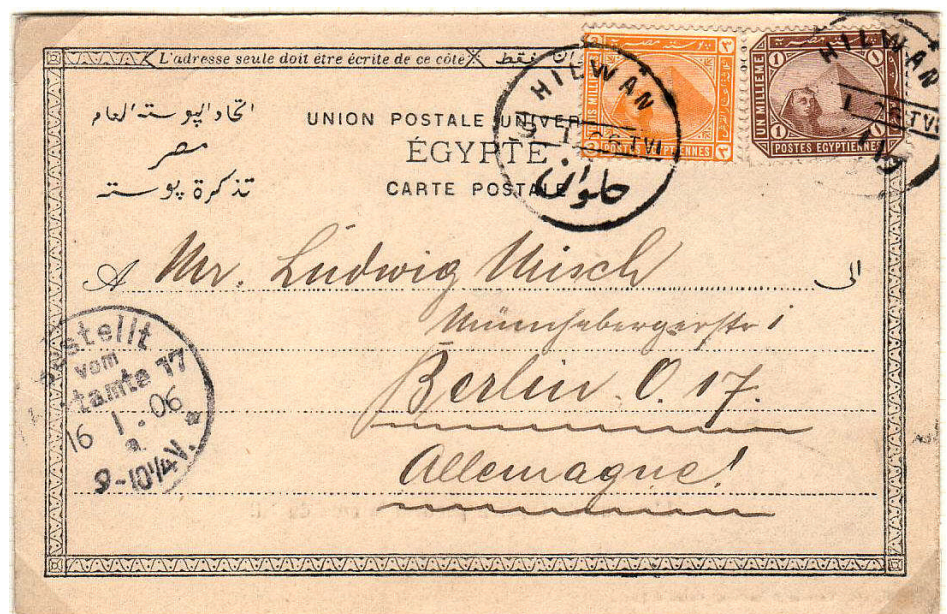 L'adresse seule doit être écrite de ce côté
فقط
اتحاد البوسته العام
مصر
تذكرة بوسته
UNION POSTALE UNIVER
ÉGYPTE
CARTE POSTALE
٣ بوسته مصرية ٣
POSTES EGYPTIENNES
1 1
UN MILLIEME
POSTES EGYPTIENNES
HILWAN
I 06 TVI
حلوان
HILWAN
TVI
A Mr. Ludwig Misch الى
Münchebergerstr 1
Berlin O. 17.
Allemagne!
Bestellt
vom
Postamte 17
16 1.06
8-10¼V.